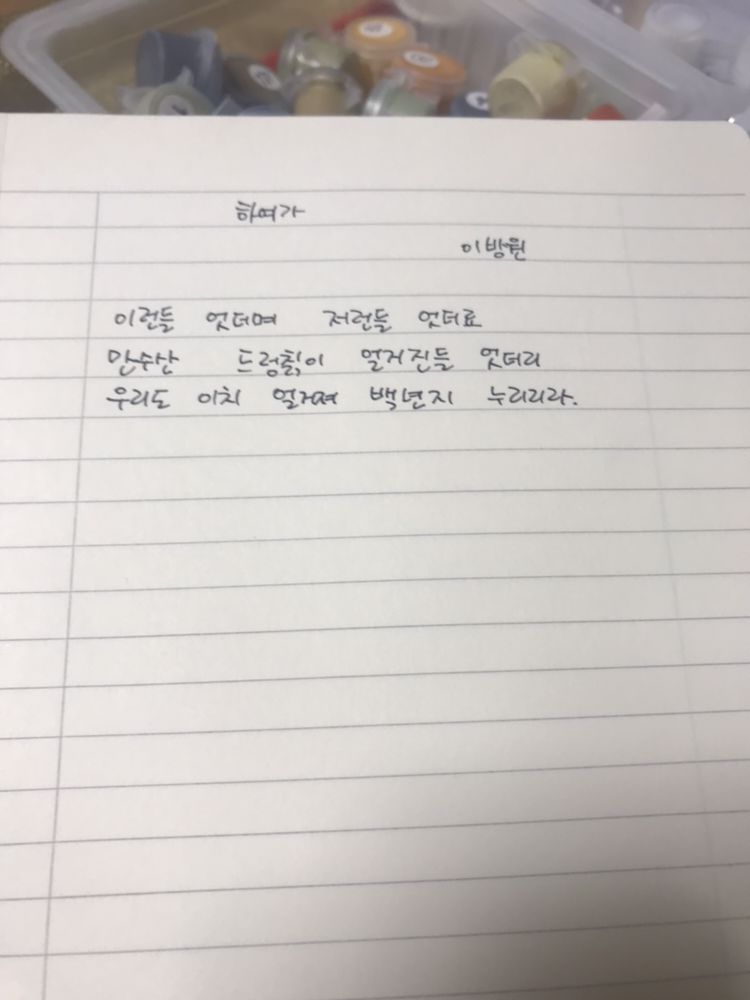 하여가
이방원
이런들 엇더며 저런들 엇더료
만수산 드렁츩이 얼거진들 엇더리
우리도 이치 얼거져 백년지 누리리라.